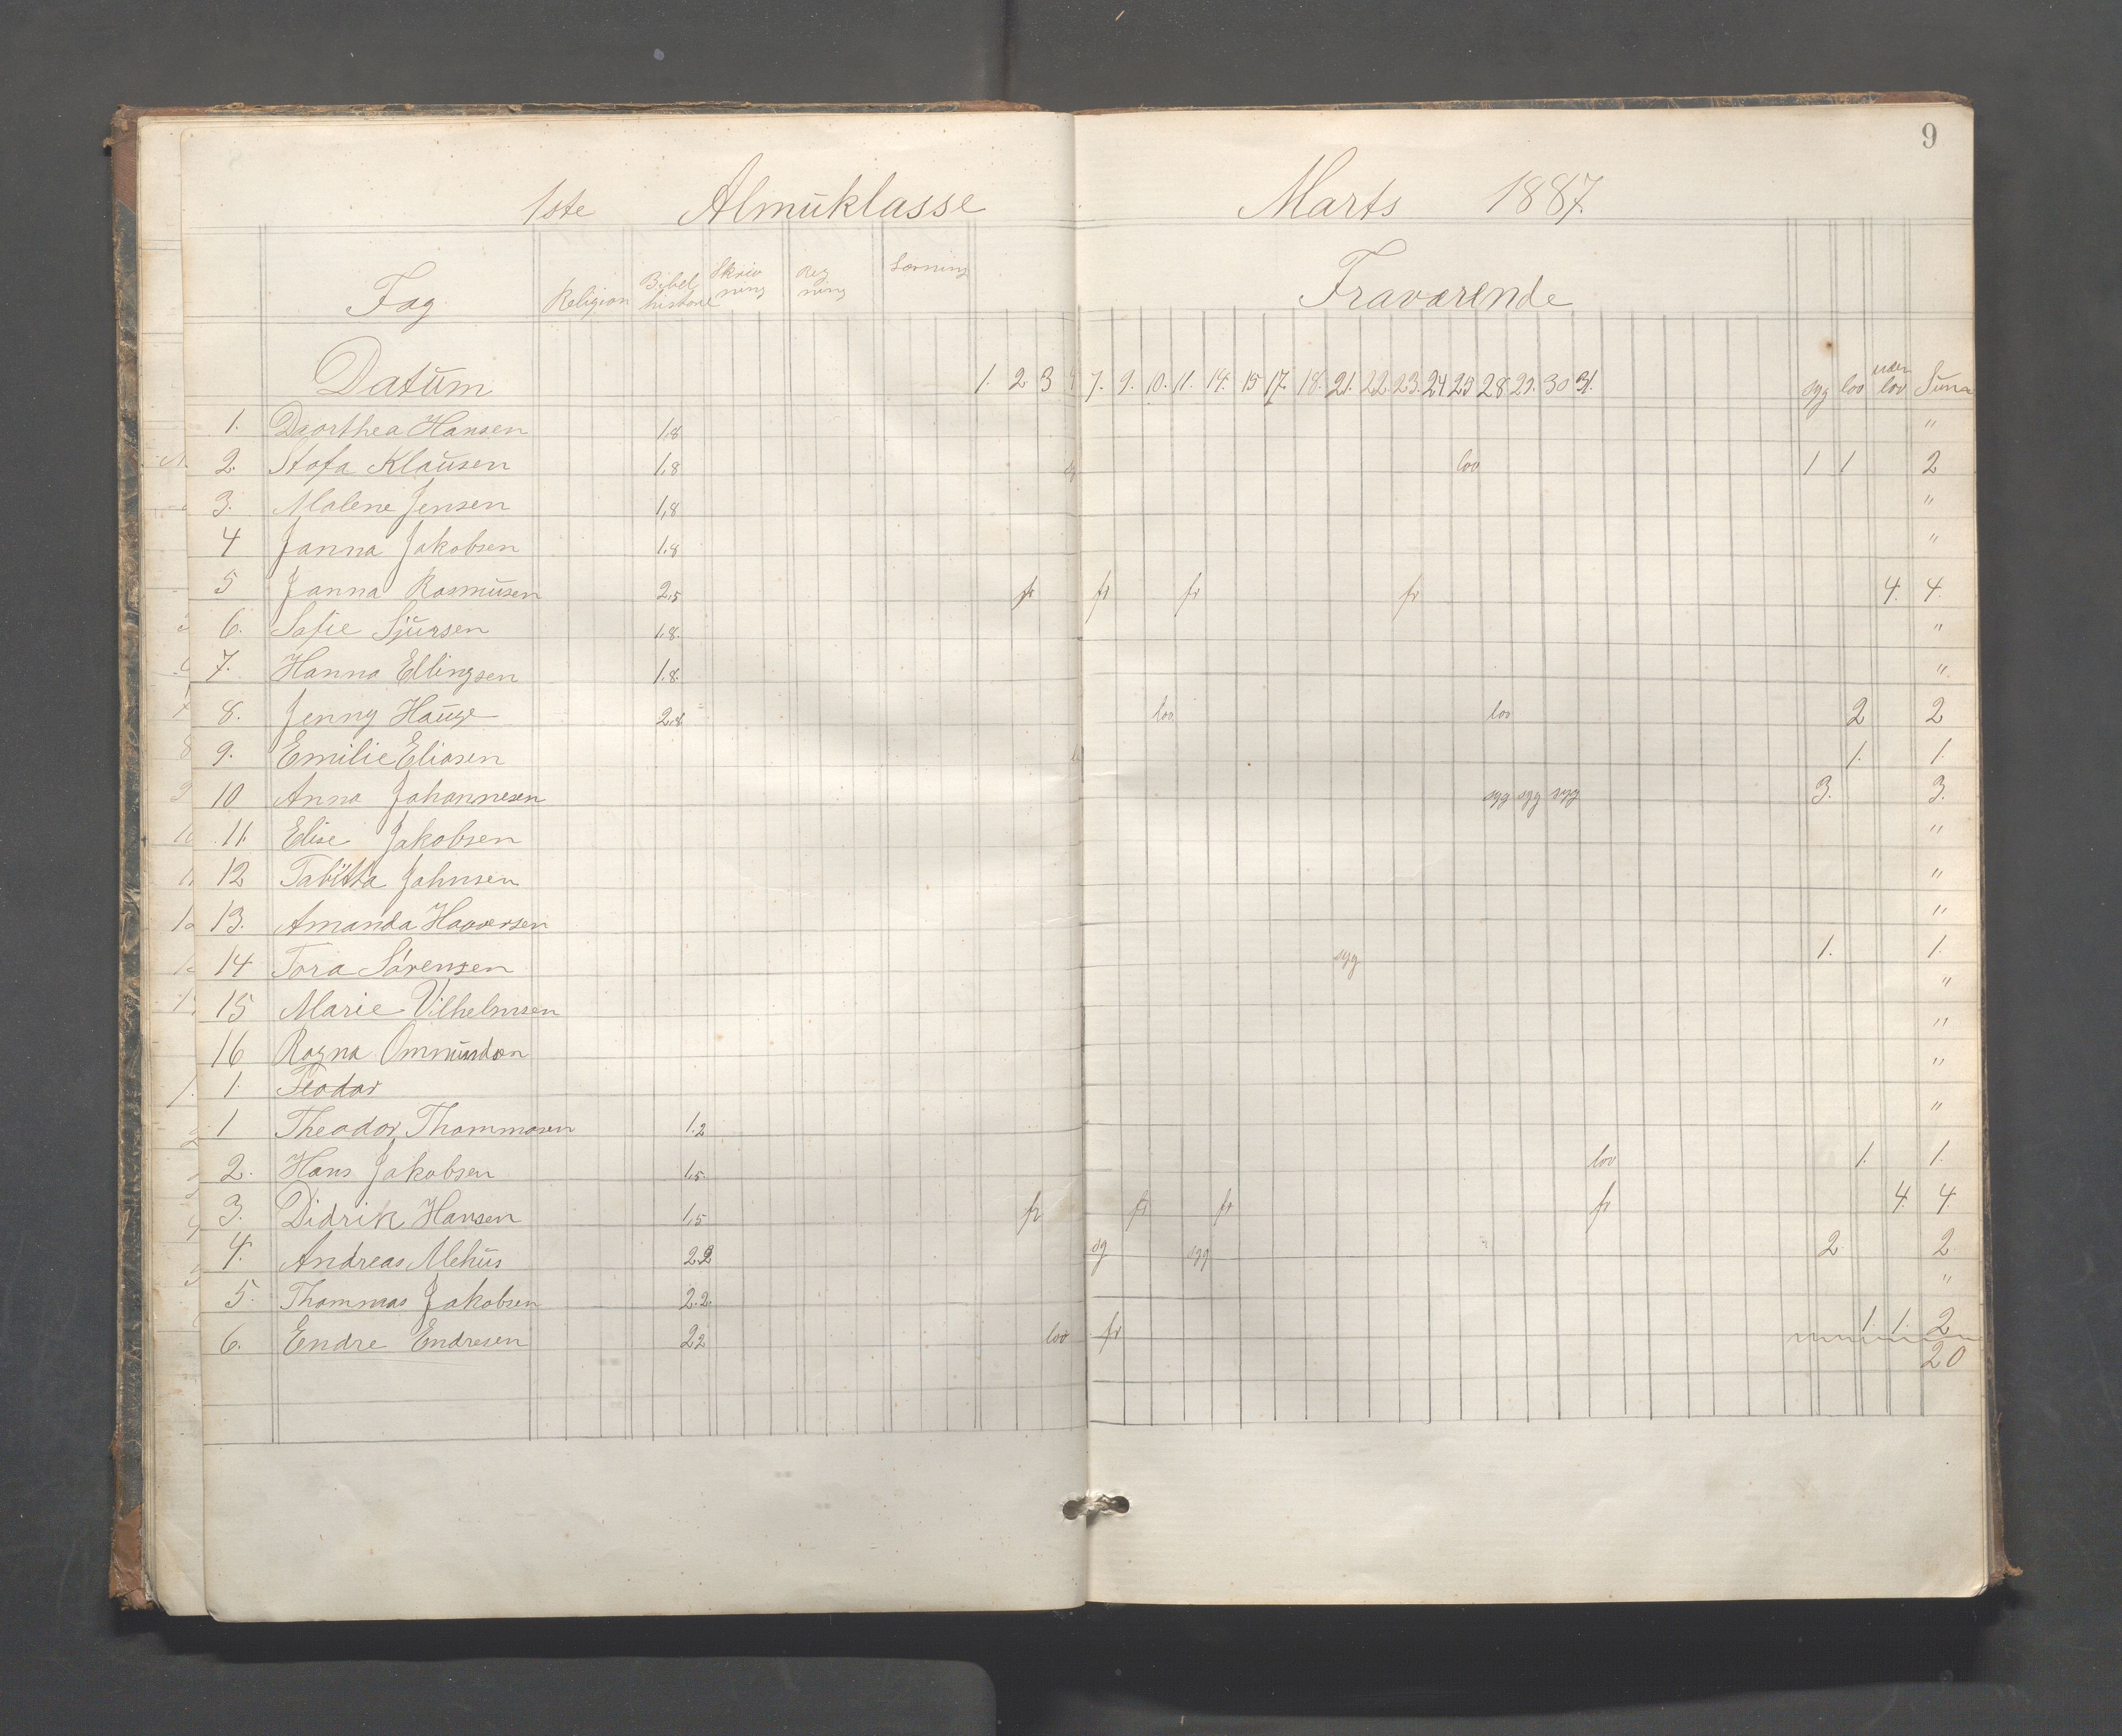 9
1ste Almuklasse Marts 1887.
Fag Religion Bibel historie Skriv ning Reg ning Fraværende
Datum 1. 2 3 4 7. 9. 10. 11. 14. 15 17. 18. 21. 22. 23. 24 25 28 29. 30 31. syg lov uden lov Sum
1. Dorthea Hansen 1,8 "
2. Stofa Klausen 1,8 lov 1 1 2
3. Malene Jensen 1,8 "
4 Janna Jakobsen 1,8 "
5 Janna Rasmusen 2,5 fr fr fr fr 4. 4.
6. Sofie Sjursen 1,8. "
7. Hanna Ellingsen 1.8. "
8. Jenny Hauge 2,8 lov lov 2 2
9. Emilie Eliasen 1. 1.
10 Anna Johannesen syg syg syg 3. 3.
11. Elise Jakobsen "
12 Tabitta Johnsen "
13. Amanda Haaversen "
14 Tora Sørensen syg 1. 1.
15 Marie Vilhelmsen "
16 Ragna Ommundsen "
1. Teodor "
1 Theodor Thommasen 1.2 "
2. Hans Jakobsen 1,5. lov 1. 1.
3. Didrik Hansen 1,5 fr fr fr fr 4. 4.
4. Andreas Mehus 2.2 sg syg 2. 2
5. Thommas Jakobsen 2.2. "
6. Endre Endresen 22 lov fr 1. 1. 2
20